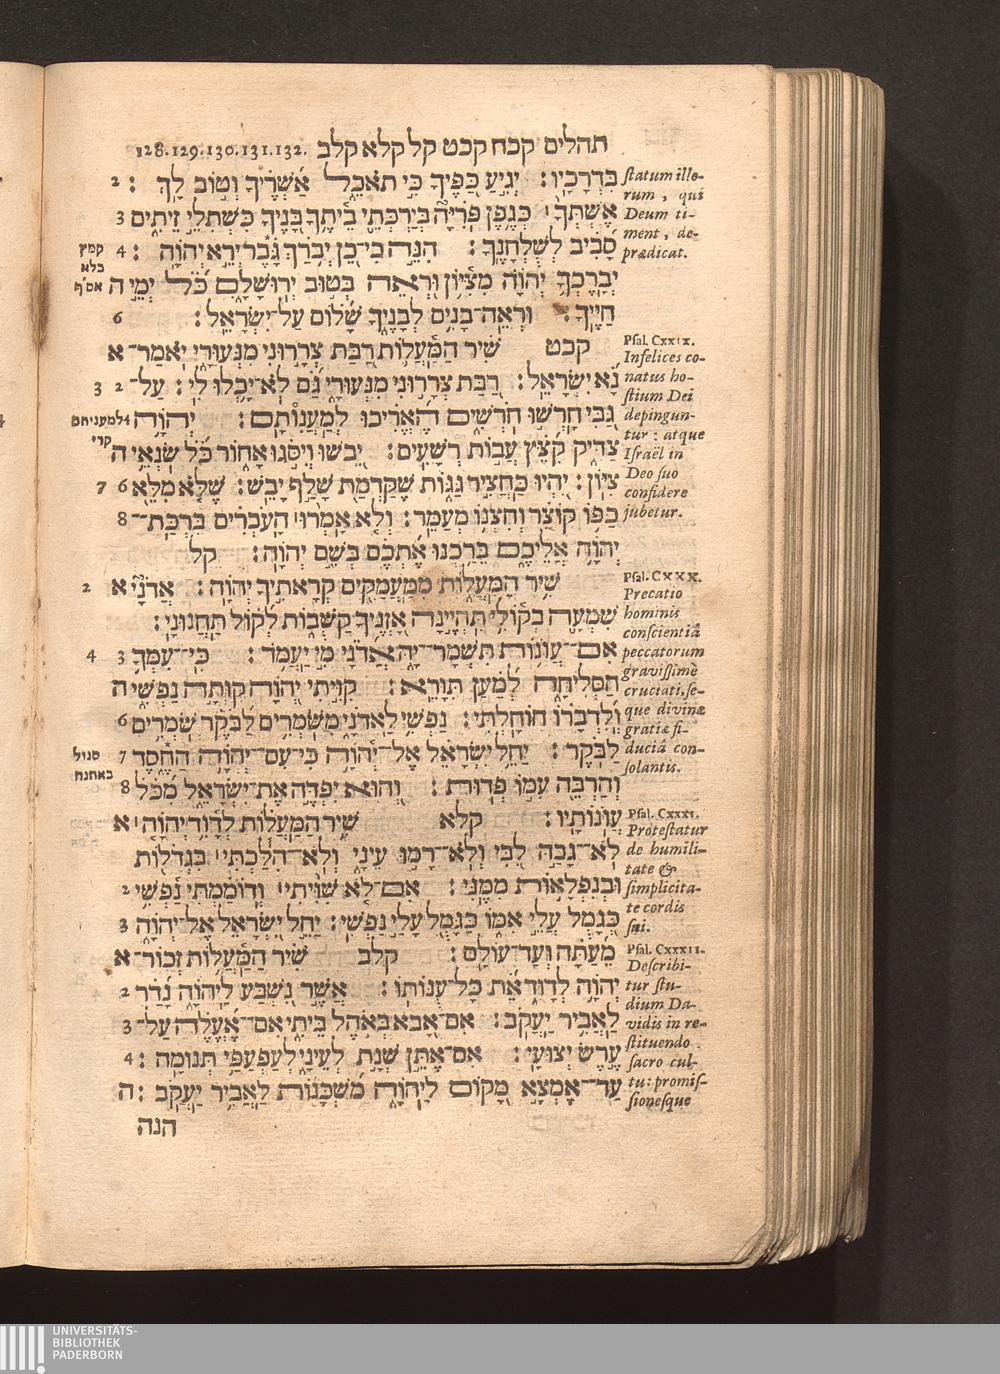 תהלים קכח קכט קל קלא קלב 128.129.130.131.132.
בִּדְרָכָיו׃ יְגִיעַ כַּפֶּיךָ כִּי תֹאכֵל אַשְׁרֶיךָ וְטוֹב לָךְ׃ 2
אֶשְׁתְּךָ כְּגֶפֶן פֹּרִיָּה בְּיַרְכְּתֵי בֵיתֶךָ בָּנֶיךָ כִּשְׁתִלֵי זֵיתִים 3
סָבִיב לְשֻׁלְחָנֶךָ׃ הִנֵּה כִי־כֵן יְבֹרַךְ גָּבֶר יְרֵא יְהוָֹה׃ 4
יְבָרֶכְךָ יְהוָֹה מִצִּיּוֹן וּרְאֵה בְּטוּב יְרוּשָׁלָםִ כֹּל יְמֵי ה
חַיֶּיךָ׃ וּרְאֵה־בָנִים לְבָנֶיךָ שָׁלוֹם עַל־יִשְׂרָאֵל׃ 6
קכט שִׁיר הַמַּעֲלוֹת רַבַּת צְרָרוּנִי מִנְּעוּרָי יֹאמַר־ א
נָא יִשְׂרָאֵל׃ רַבַּת צְרָרוּנִי מִנְּעוּרָי גַּם לֹא־יָכְלוּ לִי׃ עַל־ 2 3
גַּבִּי חָרְשׁוּ חֹרְשִׁים הֶאֱרִיכוּ לְמַעֲנוֹתָם׃ יְהוָֹה 4
צַדִּיק קִצֵּץ עֲבוֹת רְשָׁעִים׃ יֵבֹשׁוּ וְיִסֹּגוּ אָחוֹר כֹּל שֹׂנְאֵי ה
צִיּוֹן׃ יִהְיוּ כַּחֲצִיר גַּגּוֹת שֶׁקַּדְמַת שָׁלַף יָבֵשׁ׃ שֶׁלֹּא מִלֵּא 6 7
כַפּוֹ קוֹצֵר וְחִצְנוֹ מְעַמֵּר׃ וְלֹא אָמְרוּ הָעֹבְרִים בִּרְכַּת־ 8
יְהוָֹה אֲלֵיכֶם בֵּרַכְנוּ אֶתְכֶם בְּשֵׁם יְהוָֹה׃ קל
שִׁיר הַמַּעֲלוֹת מִמַּעֲמַקִּים קְרָאתִיךָ יְהוָֹה׃ אֲדֹנָי א 2
שִׁמְעָה בְקוֹלִי תִּהְיֶינָה אָזְנֶיךָ קַשֻּׁבוֹת לְקוֹל תַּחֲנוּנָי׃
אִם־עֲוֹנוֹת תִּשְׁמָר־יָהּ אֲדֹנָי מִי יַעֲמֹד׃ כִּי־עִמְּךָ 3 4
הַסְּלִיחָה לְמַעַן תִּוָּרֵא׃ קִוִּיתִי יְהוָֹה קִוְּתָה נַפְשִׁי ה
וְלִדְבָרוֹ הוֹחָלְתִּי׃ נַפְשִׁי לַאדֹנָי מִשֹּׁמְרִים לַבֹּקֶר שֹׁמְרִים 6
לַבֹּקֶר׃ יַחֵל יִשְׂרָאֵל אֶל־יְהוָֹה כִּי־עִם־יְהוָֹה הַחֶסֶד 7
וְהַרְבֵּה עִמּוֹ פְדוּת׃ וְהוּא יִפְדֶּה אֶת־יִשְׂרָאֵל מִכֹּל 8
עֲוֹנוֹתָיו׃ קלא שִׁיר הַמַּעֲלוֹת לְדָוִד יְהוָֹה א
לֹא־גָבַהּ לִבִּי וְלֹא־רָמוּ עֵינַי וְלֹא־הִלַּכְתִּי בִּגְדֹלוֹת
וּבְנִפְלָאוֹת מִמֶּנִּי׃ אִם־לֹא שִׁוִּיתִי וְדוֹמַמְתִּי נַפְשִׁי 2
כְּגָמֻל עֲלֵי אִמּוֹ כַּגָּמֻל עָלַי נַפְשִׁי׃ יַחֵל יִשְׂרָאֵל אֶל־יְהוָֹה 3
מֵעַתָּה וְעַד־עוֹלָם׃ קלב שִׁיר הַמַּעֲלוֹת זְכוֹר־ א
יְהוָֹה לְדָוִד אֵת כָּל־עֻנּוֹתוֹ׃ אֲשֶׁר נִשְׁבַּע לַיהוָֹה נָדַר 2
לַאֲבִיר יַעֲקֹב׃ אִם־אָבֹא בְּאֹהֶל בֵּיתִי אִם־אֶעֱלֶה עַל־ 3
עֶרֶשׂ יְצוּעָי׃ אִם־אֶתֵּן שְׁנַת לְעֵינָי לְעַפְעַפַּי תְּנוּמָה׃ 4
עַד־אֶמְצָא מָקוֹם לַיהוָֹה מִשְׁכָּנוֹת לַאֲבִיר יַעֲקֹב׃ ה
הנה
statum illo-
rum, qui
Deum ti-
ment, de-
prædicat.
Psal. CXXIX.
Infelices co-
natus ho-
stium Dei
depingun-
tur: atque
Israël in
Deo suo
confidere
jubetur.
Psal. CXXX.
Precatio
hominis
conscientiâ
peccatorum
gravissimè
cruciati, se-
que divinæ
gratiæ fi-
duciâ con-
solantis.
Psal. CXXXI.
Protestatur
de humili-
tate &
simplicita-
te cordis
sui.
Psal. CXXXII.
Describi-
tur stu-
dium Da-
vidis in re-
stituendo
sacro cul-
tu: promis-
sionesque
קמץ
בלא
אס״ף
למעניתם
קרי
סגול
באתנח
UNIVERSITÄTS-
BIBLIOTHEK
PADERBORN